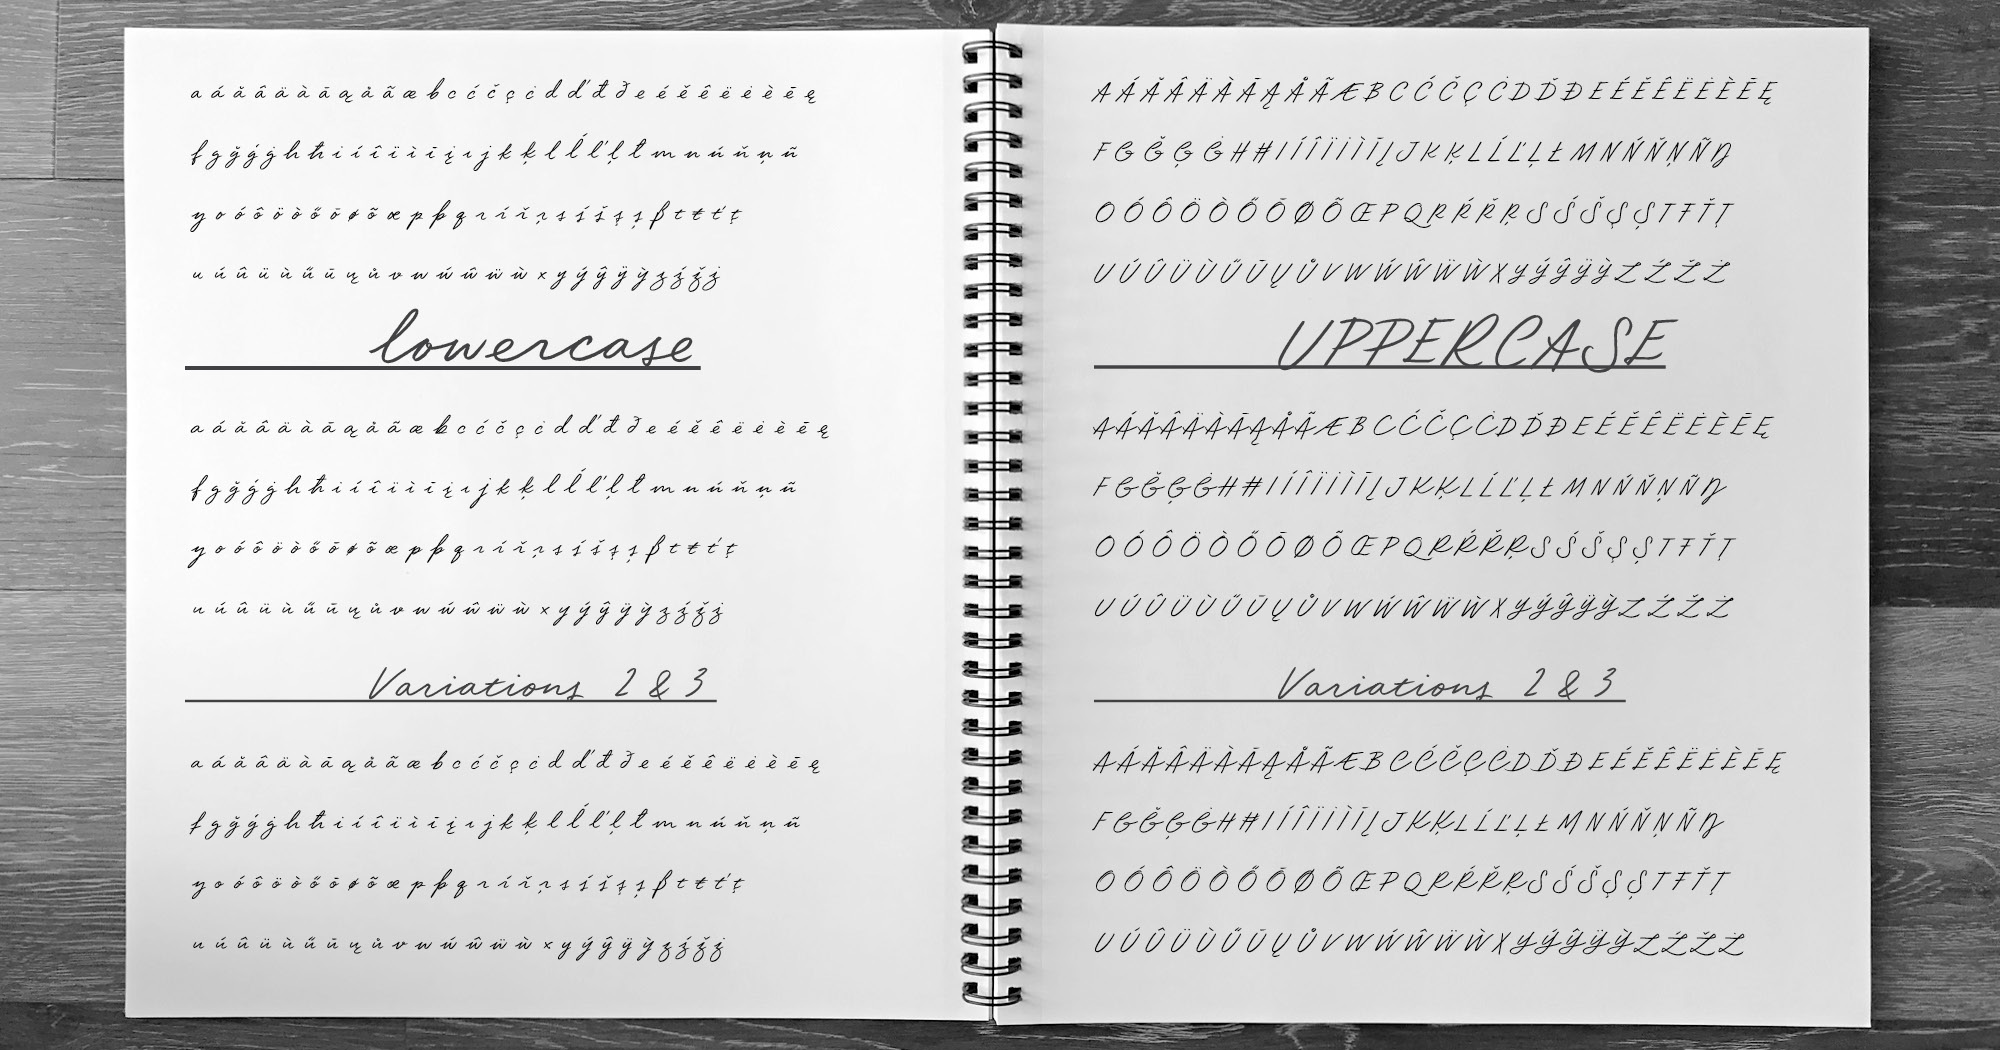 a á ă â ä à ā ą å ã æ b c ć č ç ċ d ď đ ð e é ě ê ë ė è ē ę
f g ğ ģ ġ h ħ i í î ï ì ī į ı j k ķ l ĺ ľ ļ ł m n ń ň ņ ñ
ŋ o ó ô ö ò ő ō ø õ œ p þ q r ŕ ř ŗ s ś š ş ș ß t ŧ ť ț
u ú û ü ù ű ū ų ů v w ẃ ŵ ẅ ẁ x y ý ŷ ÿ ỳ z ź ž ż
lowercase
a á ă â ä à ā ą å ã æ b c ć č ç ċ d ď đ ð e é ě ê ë ė è ē ę
f g ğ ģ ġ h ħ i í î ï ì ī į ı j k ķ l ĺ ľ ļ ł m n ń ň ņ ñ
ŋ o ó ô ö ò ő ō ø õ œ p þ q r ŕ ř ŗ s ś š ş ș ß t ŧ ť ț
u ú û ü ù ű ū ų ů v w ẃ ŵ ẅ ẁ x y ý ŷ ÿ ỳ z ź ž ż
Variations 2 & 3
a á ă â ä à ā ą å ã æ b c ć č ç ċ d ď đ ð e é ě ê ë ė è ē ę
f g ğ ģ ġ h ħ i í î ï ì ī į ı j k ķ l ĺ ľ ļ ł m n ń ň ņ ñ
ŋ o ó ô ö ò ő ō ø õ œ p þ q r ŕ ř ŗ s ś š ş ș ß t ŧ ť ț
u ú û ü ù ű ū ų ů v w ẃ ŵ ẅ ẁ x y ý ŷ ÿ ỳ z ź ž ż
A Á Ă Â Ä À Ā Ą Å Ã Æ B C Ć Č Ç Ċ D Ď Đ E É Ě Ê Ë Ė È Ē Ę
F G Ğ Ģ Ġ H Ħ I Í Î Ï İ Ì Ī Į J K Ķ L Ĺ Ľ Ļ Ł M N Ń Ň Ņ Ñ Ŋ
O Ó Ô Ö Ò Ő Ō Ø Õ Œ P Q R Ŕ Ř Ŗ S Ś Š Ş Ș T Ŧ Ť Ț
U Ú Û Ü Ù Ű Ū Ų Ů V W Ẃ Ŵ Ẅ Ẁ X Y Ý Ŷ Ÿ Ỳ Z Ź Ž Ż
UPPERCASE
A Á Ă Â Ä À Ā Ą Å Ã Æ B C Ć Č Ç Ċ D Ď Đ E É Ě Ê Ë Ė È Ē Ę
F G Ğ Ģ Ġ H Ħ I Í Î Ï İ Ì Ī Į J K Ķ L Ĺ Ľ Ļ Ł M N Ń Ň Ņ Ñ Ŋ
O Ó Ô Ö Ò Ő Ō Ø Õ Œ P Q R Ŕ Ř Ŗ S Ś Š Ş Ș T Ŧ Ť Ț
U Ú Û Ü Ù Ű Ū Ų Ů V W Ẃ Ŵ Ẅ Ẁ X Y Ý Ŷ Ÿ Ỳ Z Ź Ž Ż
Variations 2 & 3
A Á Ă Â Ä À Ā Ą Å Ã Æ B C Ć Č Ç Ċ D Ď Đ E É Ě Ê Ë Ė È Ē Ę
F G Ğ Ģ Ġ H Ħ I Í Î Ï İ Ì Ī Į J K Ķ L Ĺ Ľ Ļ Ł M N Ń Ň Ņ Ñ Ŋ
O Ó Ô Ö Ò Ő Ō Ø Õ Œ P Q R Ŕ Ř Ŗ S Ś Š Ş Ș T Ŧ Ť Ț
U Ú Û Ü Ù Ű Ū Ų Ů V W Ẃ Ŵ Ẅ Ẁ X Y Ý Ŷ Ÿ Ỳ Z Ź Ž Ż